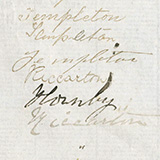 Templeton
Templeton
Templeton
Riccarton
Hornby
Riccarton